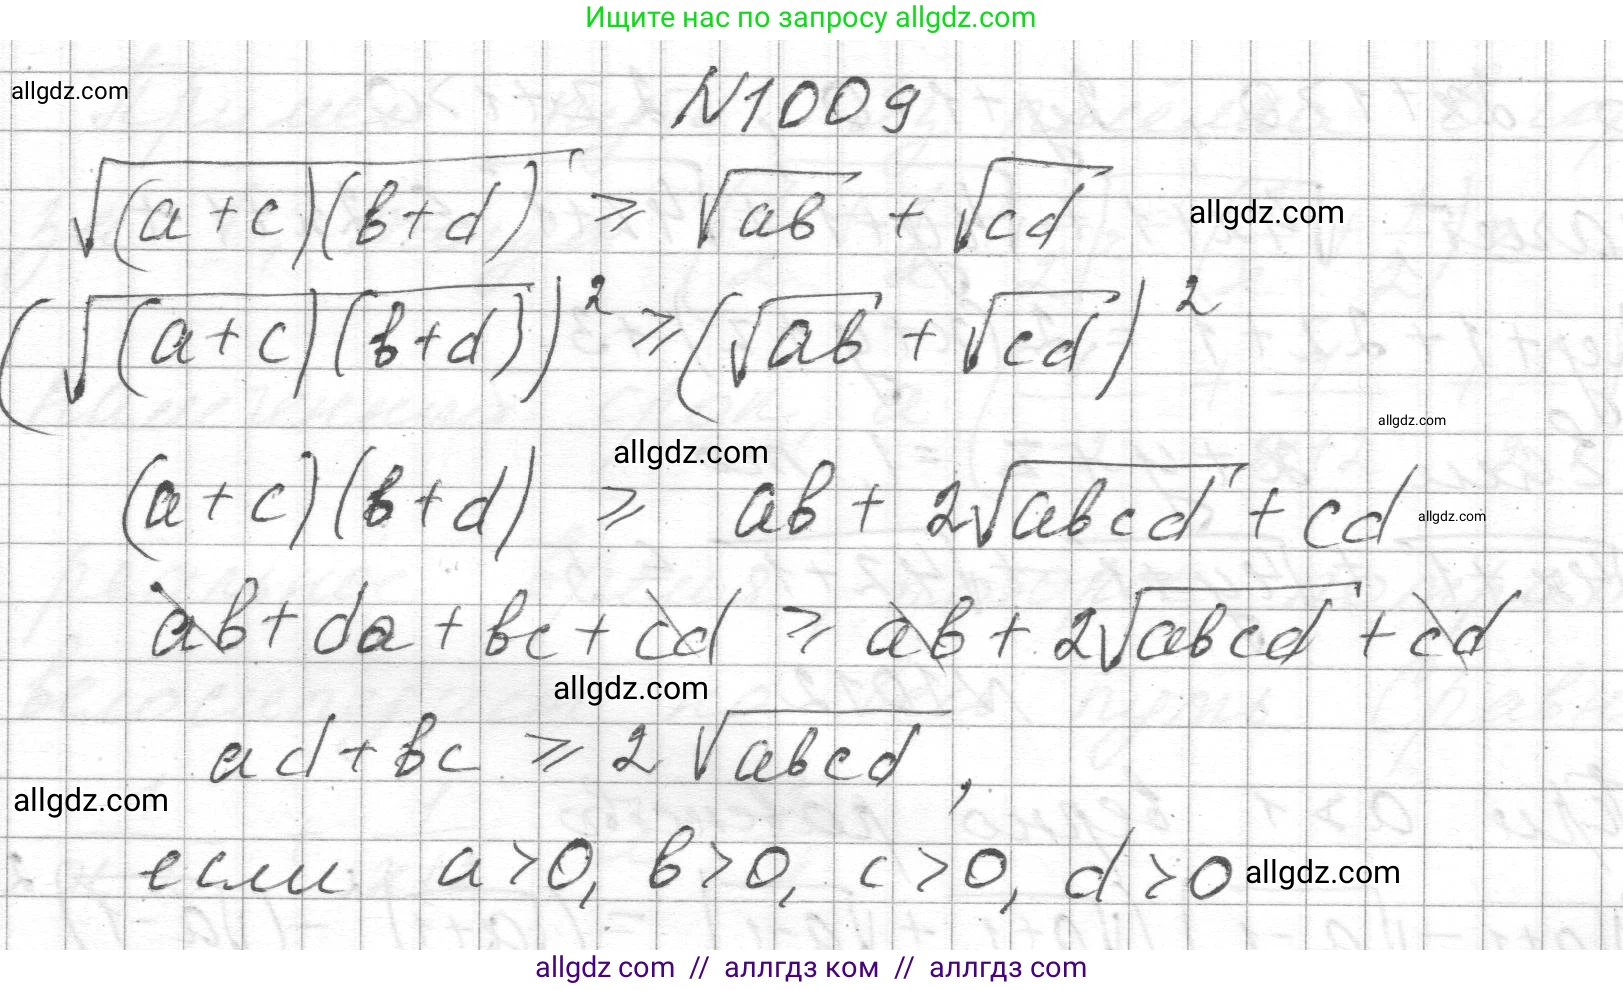 Ищите нас по запросу allgdz.com
allgdz.com
N1009
√((a+c)(b+d)) ⩾ √(ab) + √(cd)
allgdz.com
(√((a+c)(b+d)))² ⩾ (√(ab) + √(cd))²
allgdz.com
allgdz.com
(a+c)(b+d) ⩾ ab + 2√(abcd) + cd
allgdz.com
ab + da + bc + cd ⩾ ab + 2√(abcd) + cd
allgdz.com
ad + bc ⩾ 2√(abcd),
allgdz.com
если a>0, b>0, c>0, d>0
allgdz.com
allgdz com // аллгдз ком // аллгдз com